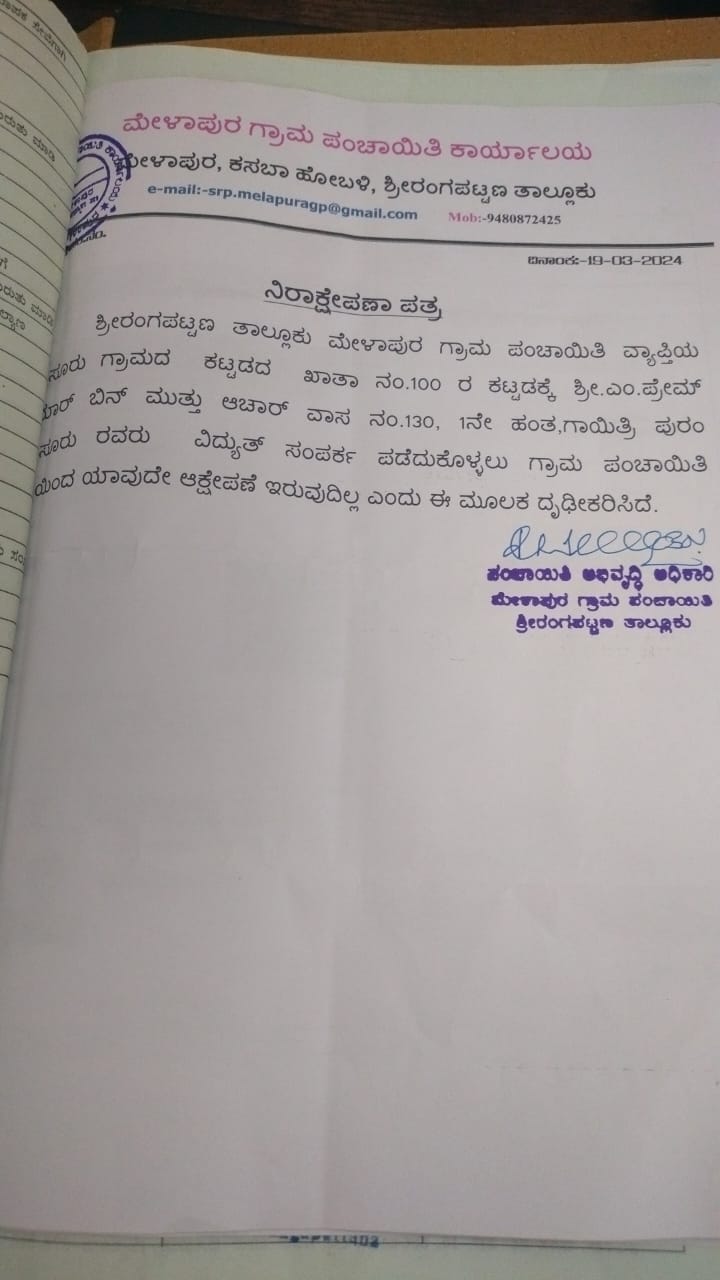 ಮೇಳಾಪುರ ಗ್ರಾಮ ಪಂಚಾಯಿತಿ ಕಾರ್ಯಾಲಯ
ಮೇಳಾಪುರ, ಕಸಬಾ ಹೋಬಳಿ, ಶ್ರೀರಂಗಪಟ್ಟಣ ತಾಲ್ಲೂಕು
e-mail:-srp.melapuragp@gmail.com Mob:-9480872425
ದಿನಾಂಕ:-19-03-2024
ನಿರಾಕ್ಷೇಪಣಾ ಪತ್ರ
ಶ್ರೀರಂಗಪಟ್ಟಣ ತಾಲ್ಲೂಕು ಮೇಳಾಪುರ ಗ್ರಾಮ ಪಂಚಾಯಿತಿ ವ್ಯಾಪ್ತಿಯ
ಸೂರು ಗ್ರಾಮದ ಕಟ್ಟಡದ ಖಾತಾ ನಂ.100 ರ ಕಟ್ಟಡಕ್ಕೆ ಶ್ರೀ.ಎಂ.ಪ್ರೇಮ್
ಬಿನ್ ಮುತ್ತು ಆಚಾರ್ ವಾಸ ನಂ.130, 1ನೇ ಹಂತ,ಗಾಯಿತ್ರಿ ಪುರಂ
ಸೂರು ರವರು ವಿದ್ಯುತ್ ಸಂಪರ್ಕ ಪಡೆದುಕೊಳ್ಳಲು ಗ್ರಾಮ ಪಂಚಾಯಿತಿ
ಯಿಂದ ಯಾವುದೇ ಆಕ್ಷೇಪಣೆ ಇರುವುದಿಲ್ಲ ಎಂದು ಈ ಮೂಲಕ ದೃಢೀಕರಿಸಿದೆ.
ಪಂಚಾಯಿತಿ ಅಭಿವೃದ್ಧಿ ಅಧಿಕಾರಿ
ಮೇಳಾಪುರ ಗ್ರಾಮ ಪಂಚಾಯಿತಿ
ಶ್ರೀರಂಗಪಟ್ಟಣ ತಾಲ್ಲೂಕು